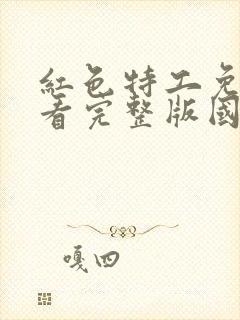 紅色特工免
看完整版國
嘎四